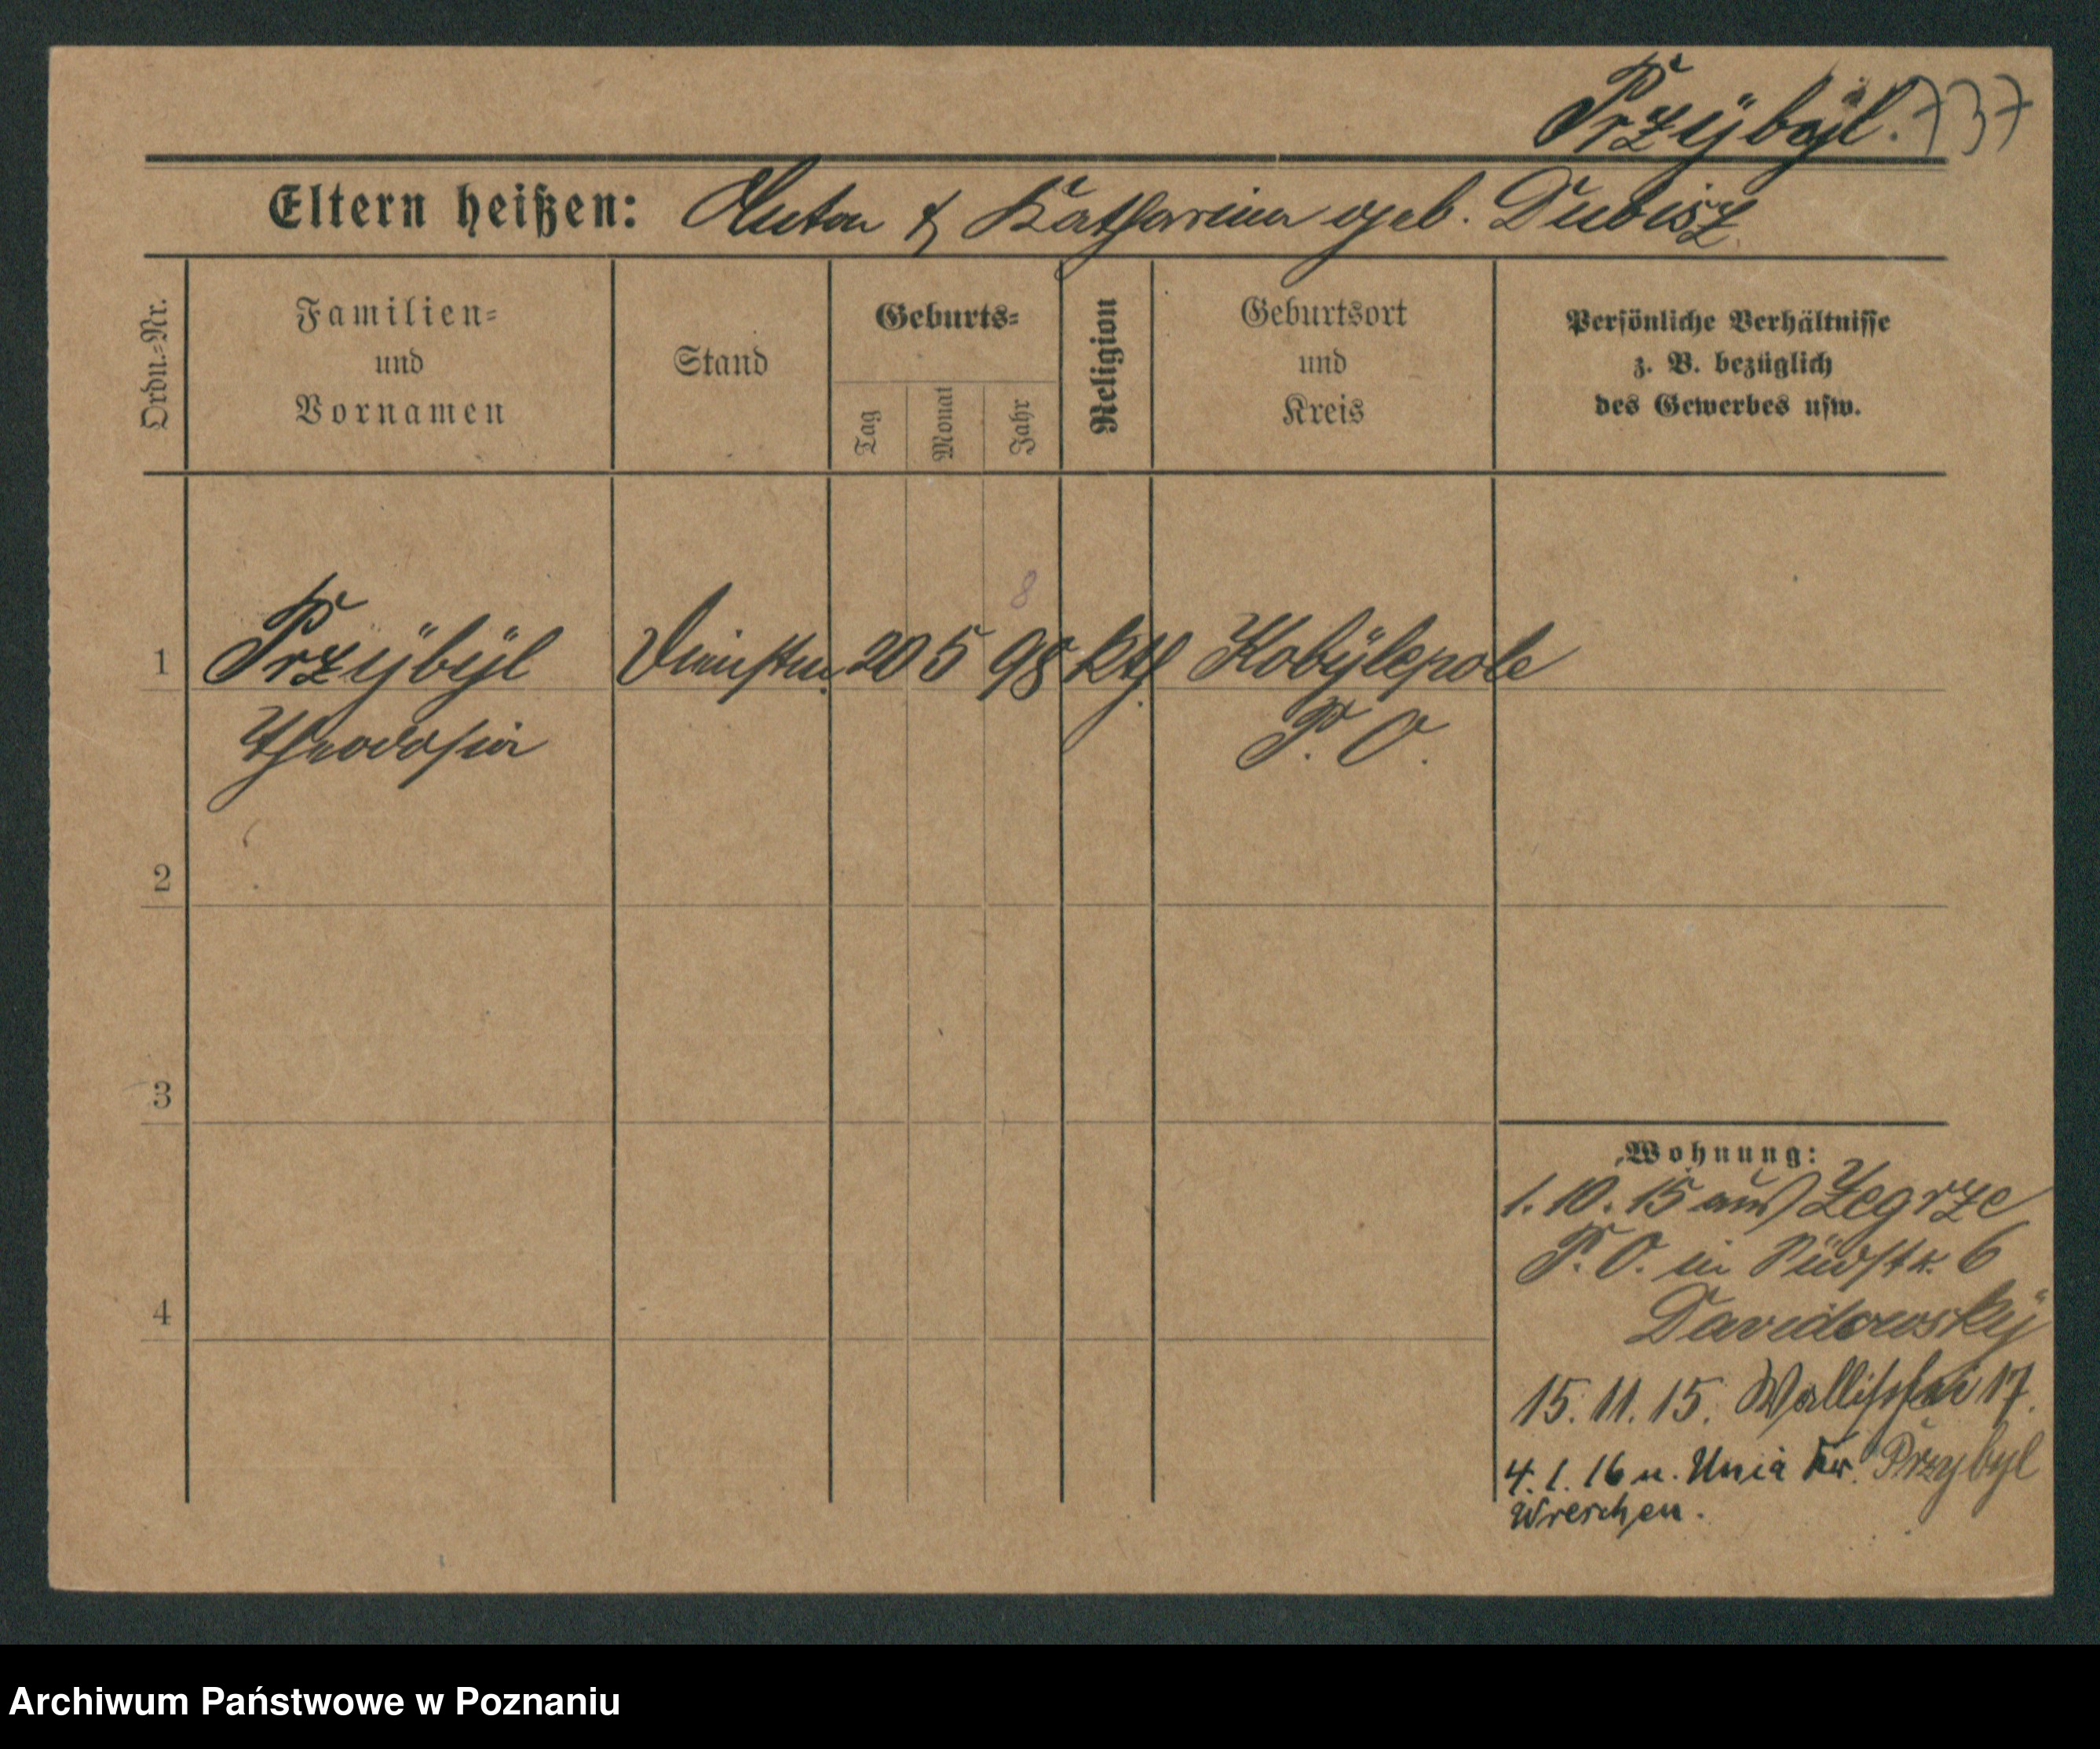 Przÿbÿl. 737
Eltern heißen: Anton & Katharina geb. Dubisz
Ordn.=Nr.
Familien=
und
Vornamen
Stand
Geburts=
Tag
Monat
Jahr
Religion
Geburtsort
und
Kreis
Persönliche Verhältnisse
z. B. bezüglich
des Gewerbes usw.
8
1 Przÿbÿl 20 5 98 kth. Kobÿlepole
Theodosia P. O.
2
3
4
Wohnung:
1.10.15 aus Zegrze
P. O. in Südstr. 6
Davidowskÿ
15.11.15. Wallischei 17.
Przybyl
4.1.16 n. Unia Kr.
Wreschen.
Archiwum Państwowe w Poznaniu